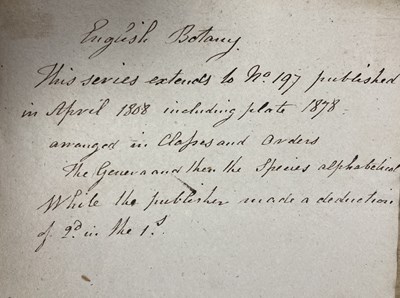 English Botany.
This series extends to No 197 published
in April 1808 including plate 1878
arranged in Classes and Orders
The Genera and then the Species alphabetical
While the publisher made a deduction
of 2d in the 1s.